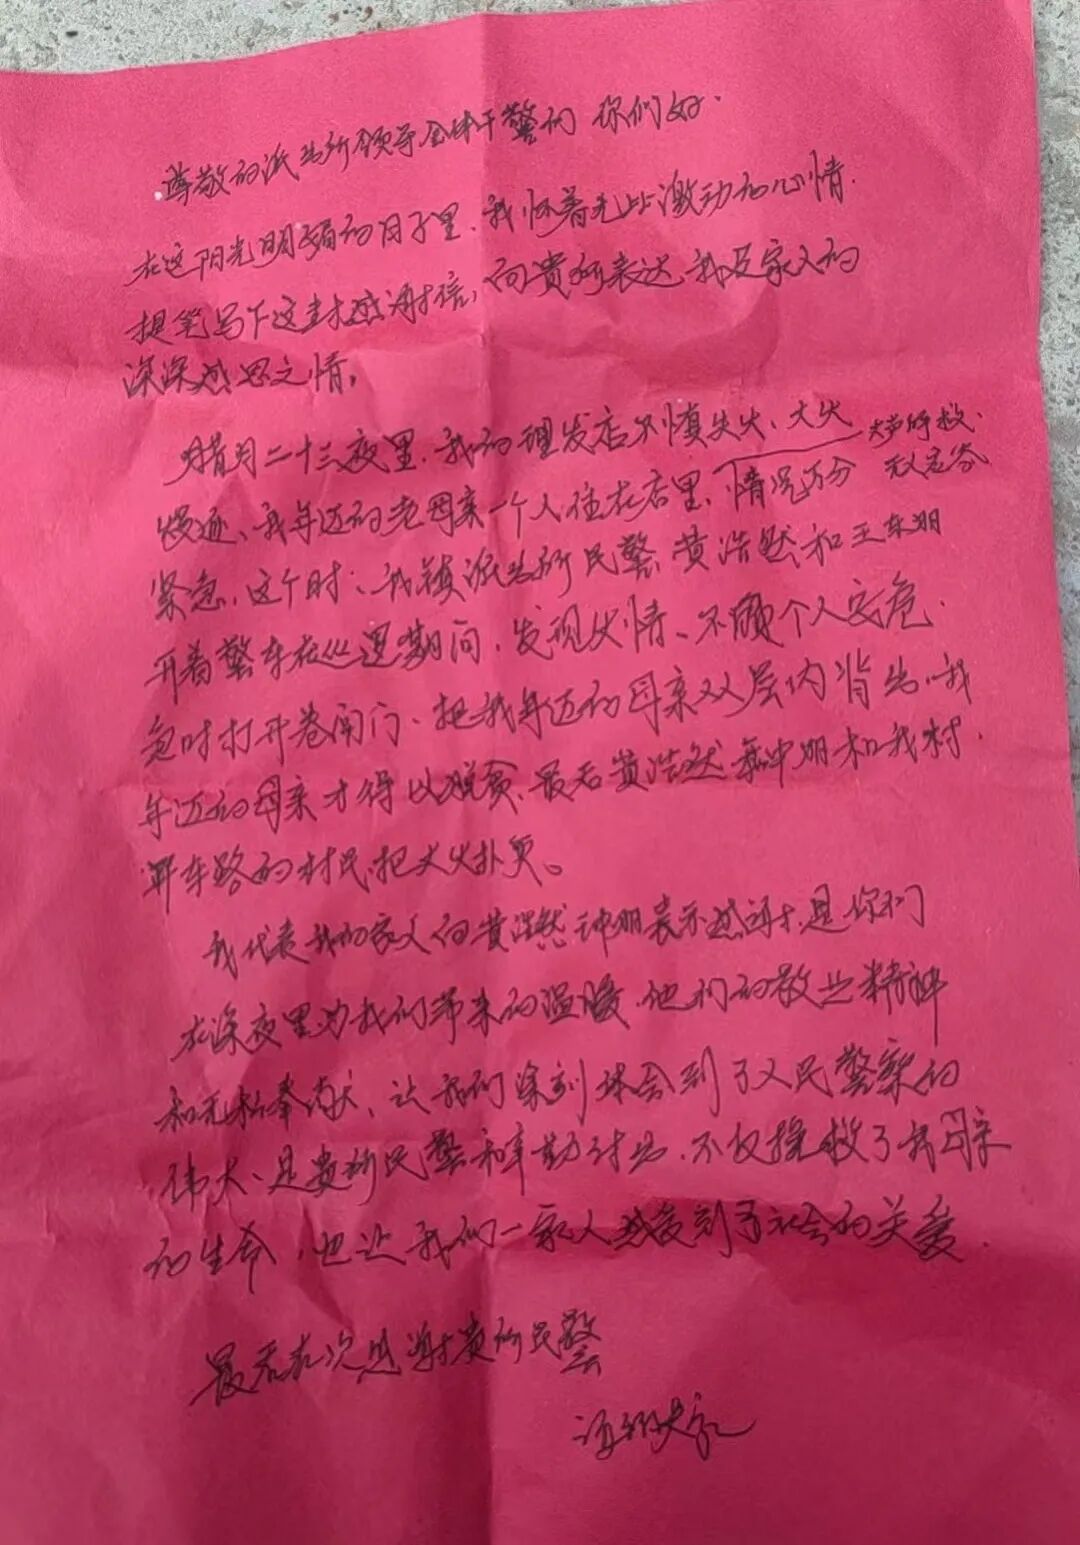 尊敬的派出所领导全体干警们 你们好.
在这阳光明媚的日子里、我怀着无比激动的心情.
提笔写下这封感谢信,向贵所表达我及家人的
深深感恩之情,
腊月二十三夜里、我的理发店不慎失火、大火 大声呼救.
蔓延、我年迈的老母亲一个人住在店里、情况万分 无人应答
紧急、这个时、我镇派出所民警黄浩然和王东明
开着警车在巡逻期间,发现火情、不顾个人安危.
急时打开卷闸门、把我年迈的母亲从层内背出、我
年迈的母亲才得以脱贫、最后黄浩然 明和我村.
开车路的村民把大火扑灭。
我代表我的家人向黄浩然 明表示感谢,是你们
在深夜里为我们带来的温暖、他们的敬业精神
和无私奉献、让我们深刻体会到了人民警察的
伟大、是贵所民警和辛勤付出、不仅挽救了我母亲
的生命,也让我们一家人感受到了社会的关爱.
最后在次感谢贵所民警